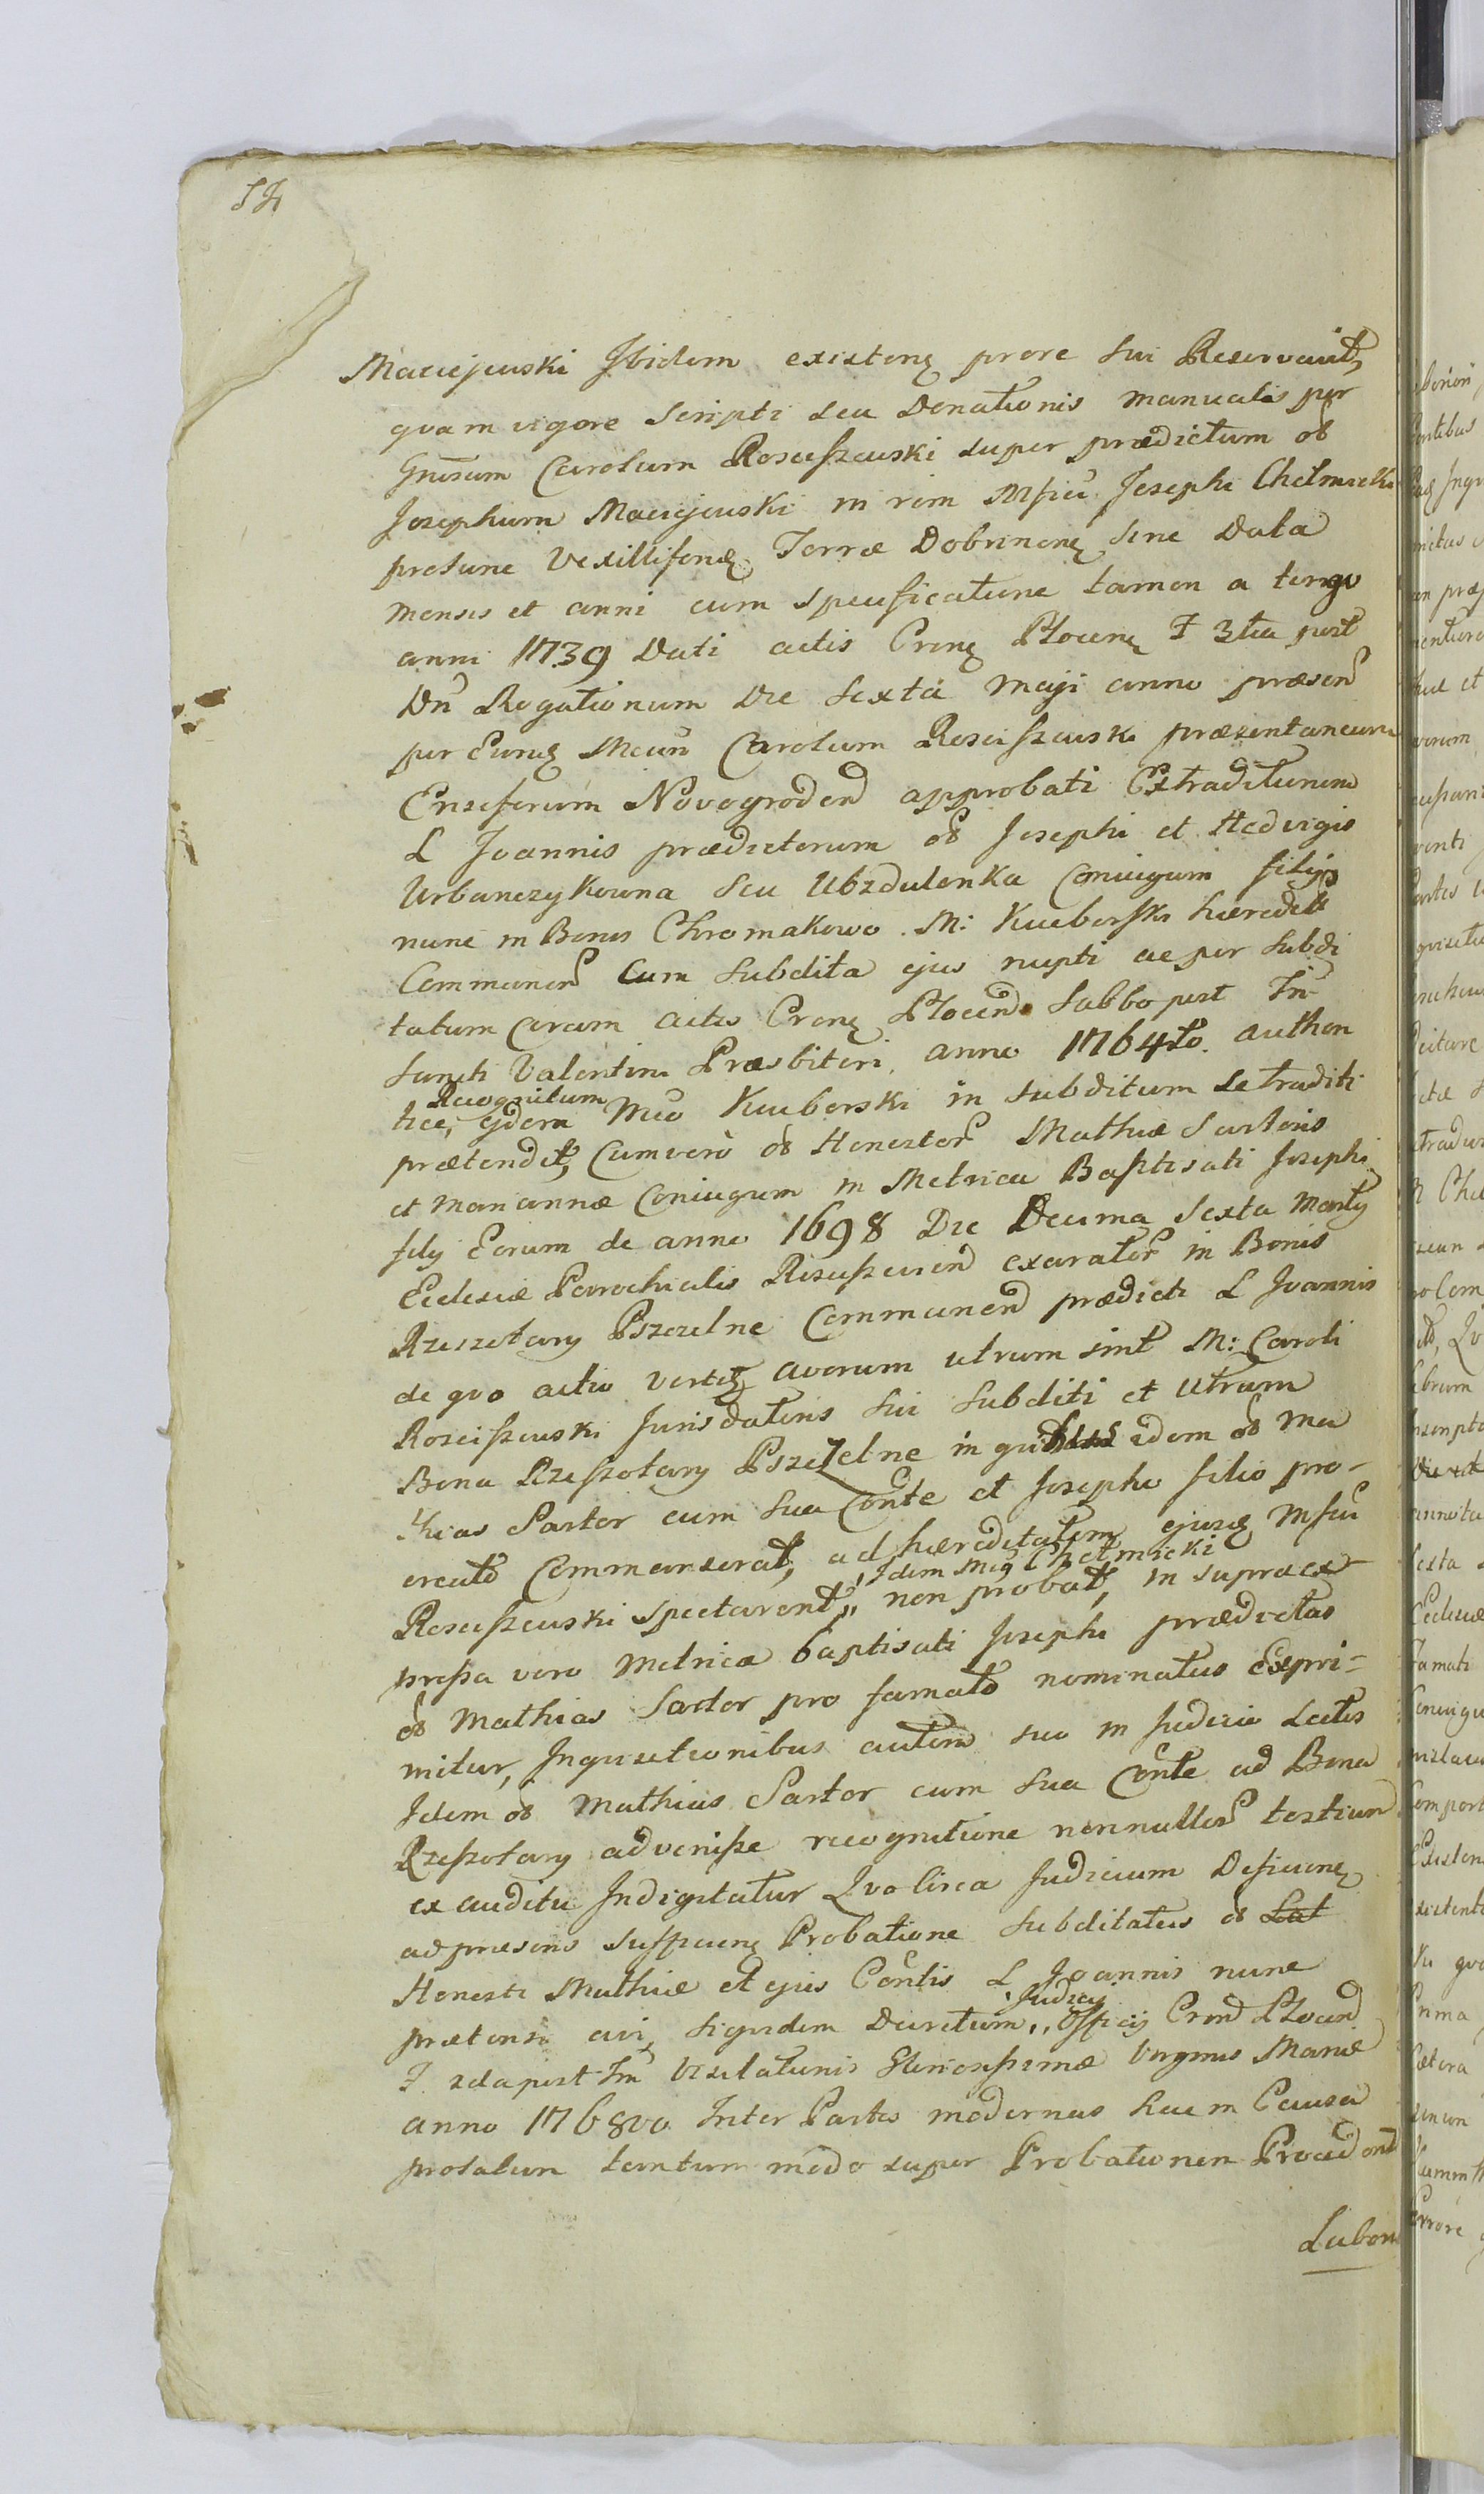 54
Maciejewski Ibidem existenę prore sui Reservavit,
quam vigore Scripti seu Donationis manualis per
Gnrosum Carolum Rosciszewski super prædictum oł
Josephum Maciejewski in rem Mfici Josephi Chełmicki
protunc Vexilliferię Terræ Dobrinenę Sine Data
mensis et anni cum specificatione tamen a tergo
anni 1739 Dati actis Crenę Płocenę F 3tia post
Dń Rogationum Die Sexta Maji anno præsenā
per Eunę Mcum Carolum Rosciszewski præsentaneum
Ensiferum Novogrodenā approbati Extraditionem
L Joannis prædictorum oł Josephi et Hedvigis
Urbanczykowna Seu Ubzdulonka Coniugum filijs
nunc in Bonis Chromakowo M: Kuciborski hæredis
Commanenā Cum Subdita ejus nupti ac per Subdi
tatum coram actis Crenę Płocenę Sabbo post Fm
Sancti Valentini Præsbiteri anno 1764to authen
Recognitum
tice, eJdem Mco Kuciborski in subditum Se traditi
prætendit, Cum vero oł Honestoř Mathiæ Sartoris
et Mariannæ Coniugum in Metrica Baptisati Josephi
filij Eorum de anno 1698 Die Decima Sexta Martij
Ecclesiæ Parochialis Rosciszevienā exaratoř in Bonis
Rzeszotary Pszczelne Commanenā prædicti L Joannis
de quo actio vertię avorum utrum sint M: Caroli
Rosciszewski Jurisdatoris sui Subditi et Utrum
Bona Rzeszotary Pszczelne in quibus idem oł Ma
thias Sartor cum Sua Conte et Josepho filio pro-
creato Commanserat, ad hæreditatem ejusę Mfici
, Idem Mcę Chełmicki
Rosciszewski spectarent,, non probat, in supraex-
pressa vero Metrica baptisati Josephi prædictus
oł Mathias Sartor pro famato nominatus Expri=
mitur, Inquisitionibus autem suo in Judicio Lectis
Idem oł Mathias Sartor cum Sua Conte ad Bona
Rzeszotary advenisse recognitione nonnulloř testium
ex auditu Indigitatur Quo circa Judicium Deficienę
ad præsens sufficienę Probatione Subditatus oł
Honesti Mathiæ et ejus Contis L Joannis nunc
, Judicij
prætensi avi, siquidem Decretum,, Officij Crenā Płocenā
F. 2da post Fm Visitationis Gloriosissimæ Virginis Mariæ
anno 1768vo Inter Partes modernas hac in Causa
prolatum tantum modo super Probationem Procedent
Labor